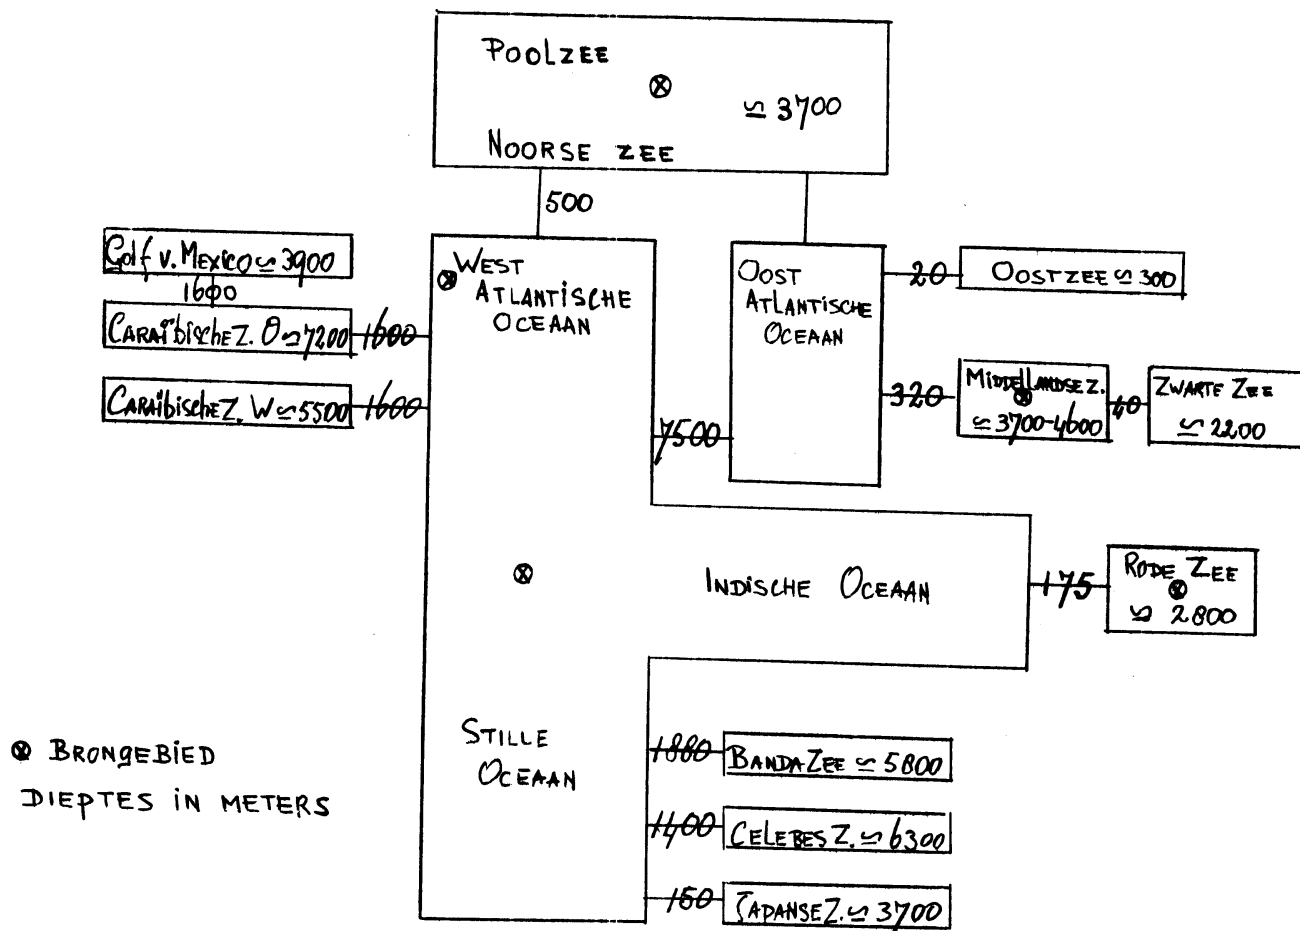 POOLZEE
≃ 3700
NOORSE ZEE
500
Golf v. Mexico ≃ 3900
1600
CARAÏbische Z. O ≃ 7200
1600
CARAÏbische Z. W ≃ 5500
1600
WEST
ATLANTISCHE
OCEAAN
7500
OOST
ATLANTISCHE
OCEAAN
20
OOSTZEE ≃ 300
320
MIDDELLANDSE Z.
≃ 3700-4600
40
ZWARTE ZEE
≃ 2200
INDISCHE OCEAAN
175
RODE ZEE
≃ 2800
STILLE
OCEAAN
1880
BANDA ZEE ≃ 5800
1400
CELEBES Z. ≃ 6300
150
JAPANSE Z. ≃ 3700
⊗ BRONGEBIED
DIEPTES IN METERS